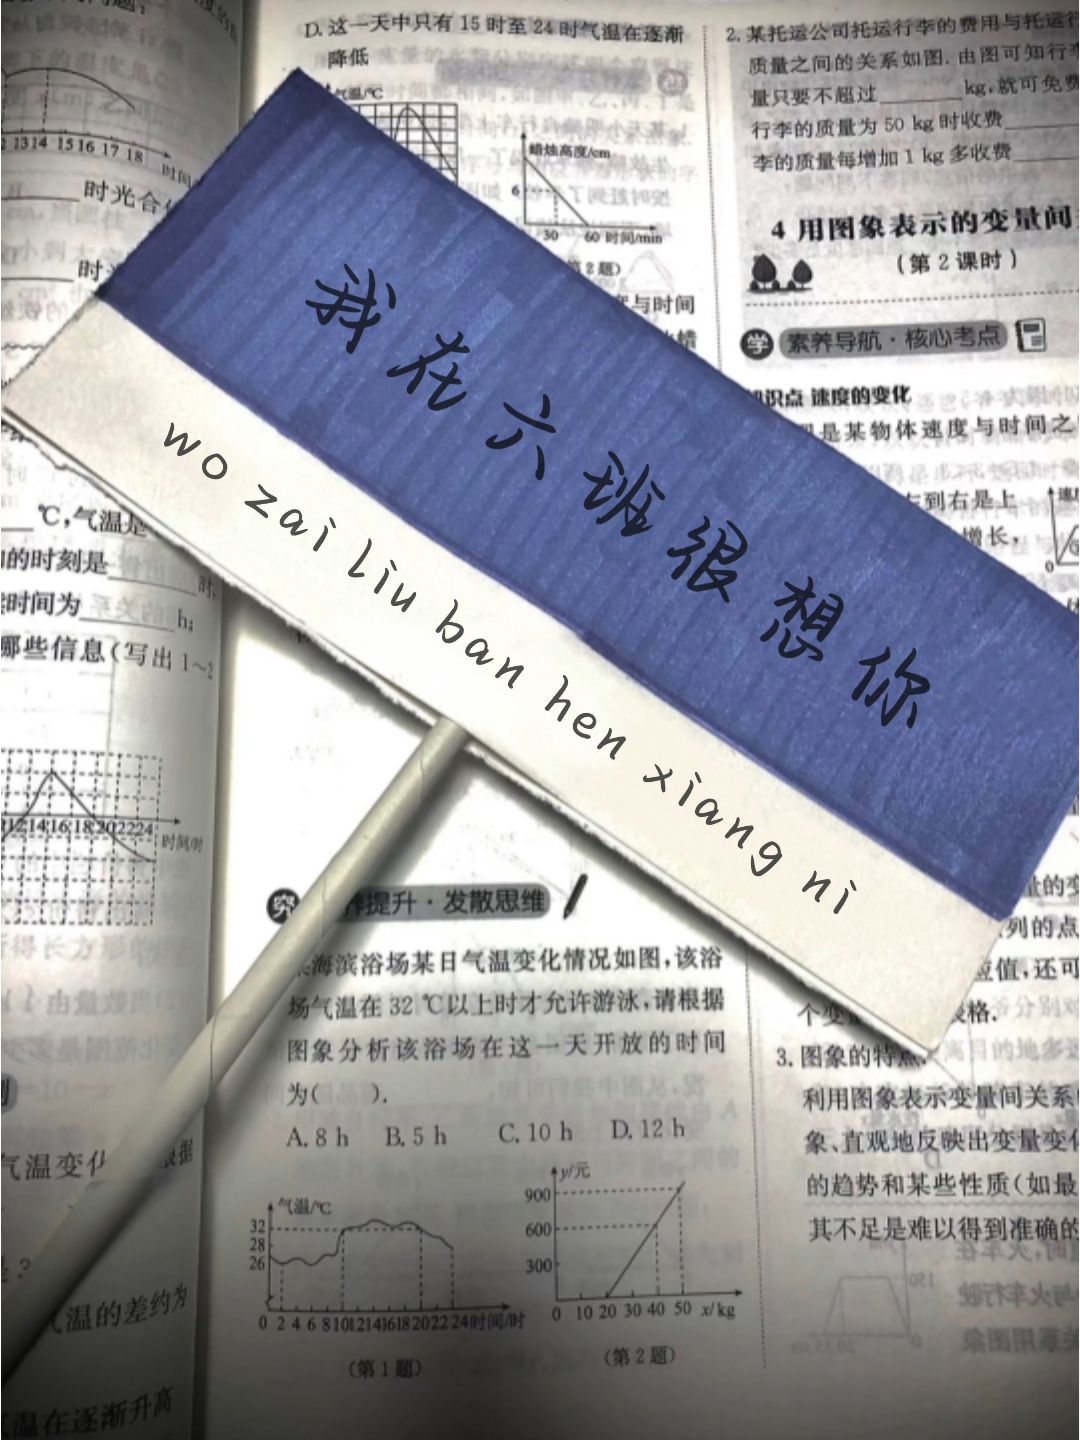 我在六班很想你
wo zai liu ban hen xiang ni
D. 这一天中只有 15 时至 24 时气温在逐渐
降低
气温/℃
蜡烛高度/cm
6
30 60 时间/min
度与时间
2. 某托运公司托运行李的费用与托运行
质量之间的关系如图. 由图可知行李
量只要不超过______kg,就可免费
行李的质量为 50 kg 时收费
李的质量每增加 1 kg 多收费
4 用图象表示的变量间
(第 2 课时)
学 素养导航·核心考点
知识点 速度的变化
图是某物体速度与时间之
左到右是上
增长,
13 14 15 16 17 18 时间
时光合
℃,气温是
的时刻是______时.
时间为______h;
哪些信息(写出 1~2
12 14 16 18 20 22 24 时间/时
究 养提升·发散思维
海滨浴场某日气温变化情况如图,该浴
场气温在 32 ℃以上时才允许游泳,请根据
图象分析该浴场在这一天开放的时间
为( ).
A. 8 h B. 5 h C. 10 h D. 12 h
气温/℃
32
28
26
0 2 4 6 8 10 12 14 16 18 20 22 24 时间/时
(第 1 题)
y/元
900
600
300
0 10 20 30 40 50 x/kg
(第 2 题)
量的变
列的点
应值,还可
个变 表格.
3. 图象的特点
利用图象表示变量间关系
象、直观地反映出变量变化
的趋势和某些性质(如最
其不足是难以得到准确的
气温变化
气温的差约为
温在逐渐升高